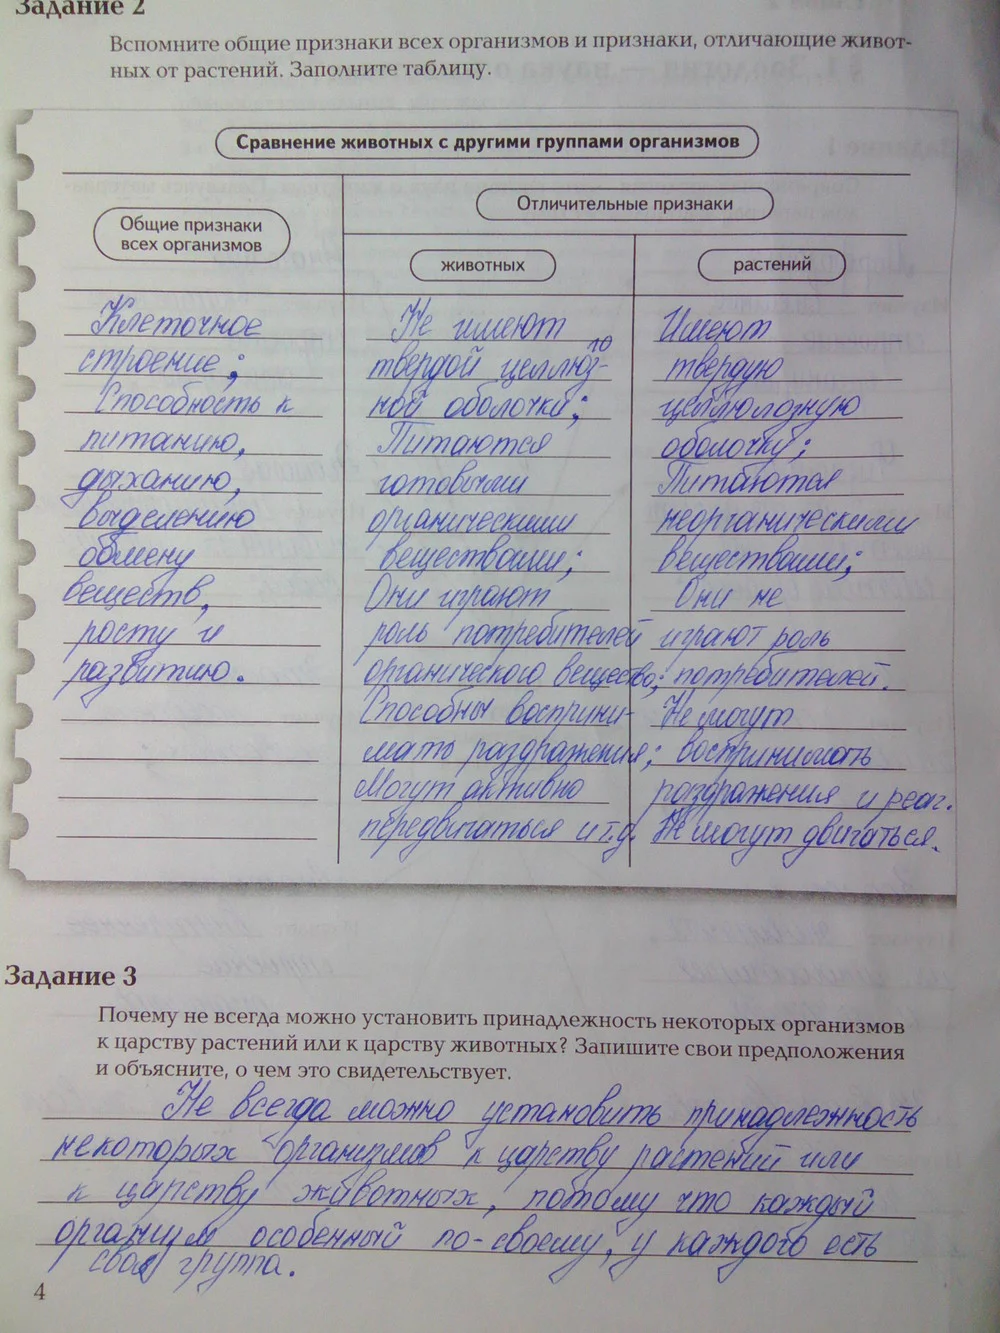 Задание 2
Вспомните общие признаки всех организмов и признаки, отличающие живот-
ных от растений. Заполните таблицу.
Сравнение животных с другими группами организмов
Общие признаки
всех организмов
Отличительные признаки
животных
растений
Клеточное
строение;
Способность к
питанию,
дыханию,
выделению
обмену
веществ,
росту и
развитию.
Не имеют
твердой целлюз-
ной оболочки;
Питаются
готовыми
органическими
веществами;
Они играют
роль потребителей
органического вещества;
Способны восприни-
мать раздражения;
Могут активно
передвигаться и т.д.
Имеют
твердую
целлюлозную
оболочку;
Питаются
неорганическими
веществами;
Они не
играют роль
потребителей.
Не могут
воспринимать
раздражения и реаг.
Не могут двигаться.
Задание 3
Почему не всегда можно установить принадлежность некоторых организмов
к царству растений или к царству животных? Запишите свои предположения
и объясните, о чем это свидетельствует.
Не всегда можно установить принадлежность
некоторых организмов к царству растений или
к царству животных, потому что каждый
организм особенный по-своему, у каждого есть
своя группа.
4